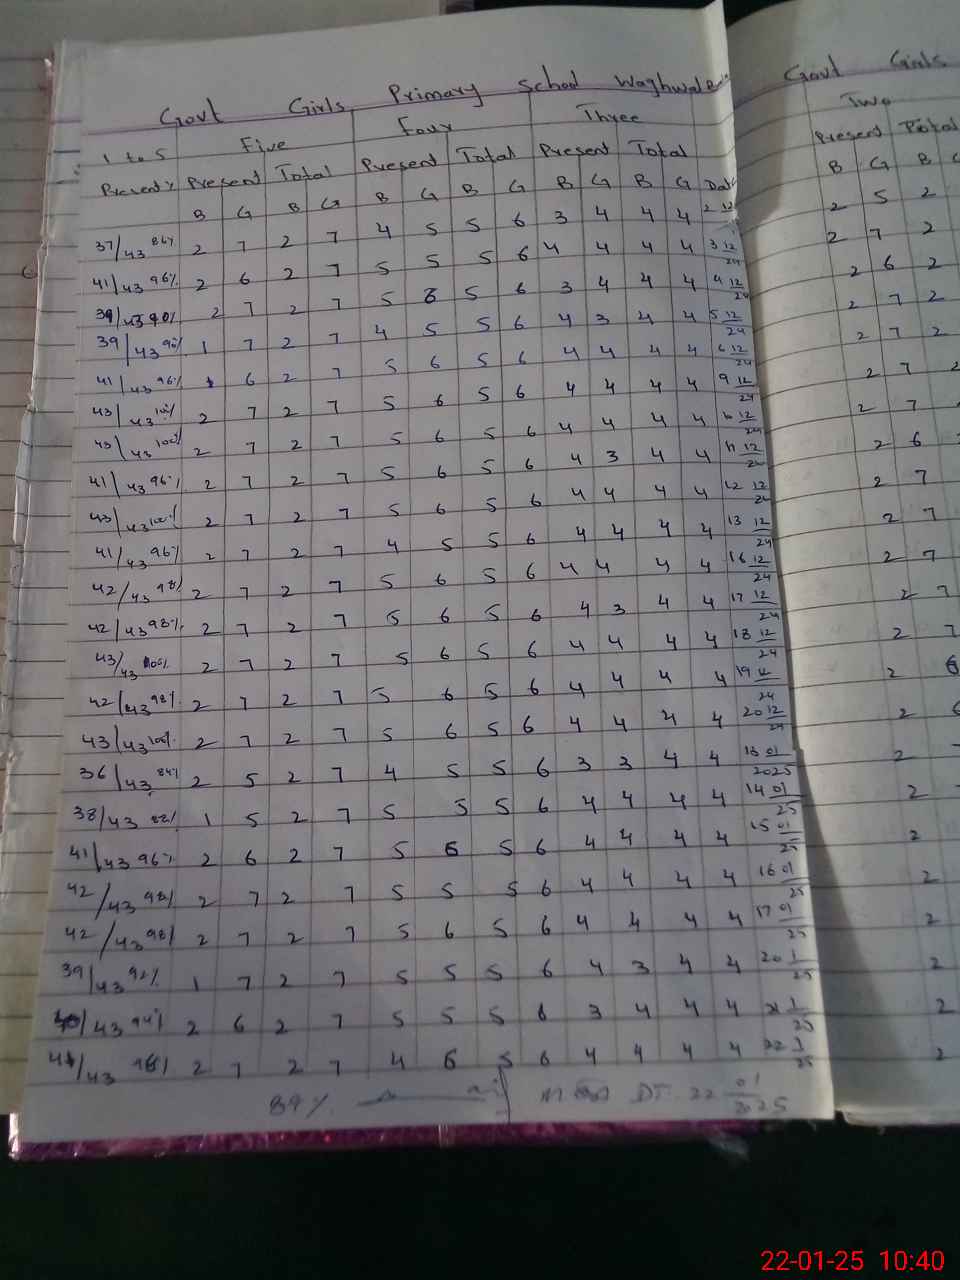 Govt Girls Primary School Waghwale
1 to 5 Five Four Three
Present% Present Total Present Total Present Total
B G B G B G B G B G B G Date
37/43 86% 2 7 2 7 4 5 5 6 3 4 4 4 2 12
41/43 96% 2 6 2 7 5 5 5 6 4 4 4 4 3 12/24
39/43 90% 2 7 2 7 5 6 5 6 3 4 4 4 4 12/24
39/43 1 7 2 7 4 5 5 6 4 3 4 4 5 12/24
41/43 96% 6 2 7 5 6 5 6 4 4 4 4 6 12/24
43/43 2 7 2 7 5 6 5 6 4 4 4 4 9 12/24
43/43 100% 2 7 2 7 5 6 5 6 4 4 4 4 10 12/24
41/43 96% 2 7 2 7 5 6 5 6 4 3 4 4 11 12/24
43/43 100% 2 7 2 7 5 6 5 6 4 4 4 4 12 12/24
41/43 96% 2 7 2 7 4 5 5 6 4 4 4 4 13 12/24
42/43 98% 2 7 2 7 5 6 5 6 4 4 4 4 16 12/24
42/43 98% 2 7 2 7 5 6 5 6 4 3 4 4 17 12/24
43/43 100% 2 7 2 7 5 6 5 6 4 4 4 4 18 12/24
42/43 98% 2 7 2 7 5 6 5 6 4 4 4 4 19 12/24
43/43 100% 2 7 2 7 5 6 5 6 4 4 4 4 20 12/24
36/43 84% 2 5 2 7 4 5 5 6 3 3 4 4 13 01/2025
38/43 82% 1 5 2 7 5 5 5 6 4 4 4 4 14 01/25
41/43 96% 2 6 2 7 5 6 5 6 4 4 4 4 15 01/25
42/43 98% 2 7 2 7 5 5 5 6 4 4 4 4 16 01/25
42/43 98% 2 7 2 7 5 6 5 6 4 4 4 4 17 01/25
39/43 92% 1 7 2 7 5 5 5 6 4 3 4 4 20 1/25
40/43 94% 2 6 2 7 5 5 5 6 3 4 4 4 21 1/25
41/43 2 7 2 7 4 6 5 6 4 4 4 4 22 1/25
89% DT. 22 01/2025
Govt Girls
Two
Present Total
B G B
2 5 2
2 7 2
2 6 2
2 7 2
2 7 2
2 7 2
2 7
2 6
2 7
2 7
2 7
2 7
2 7
2 6
2 6
2
2
2
2
2
2
2
2
22-01-25 10:40